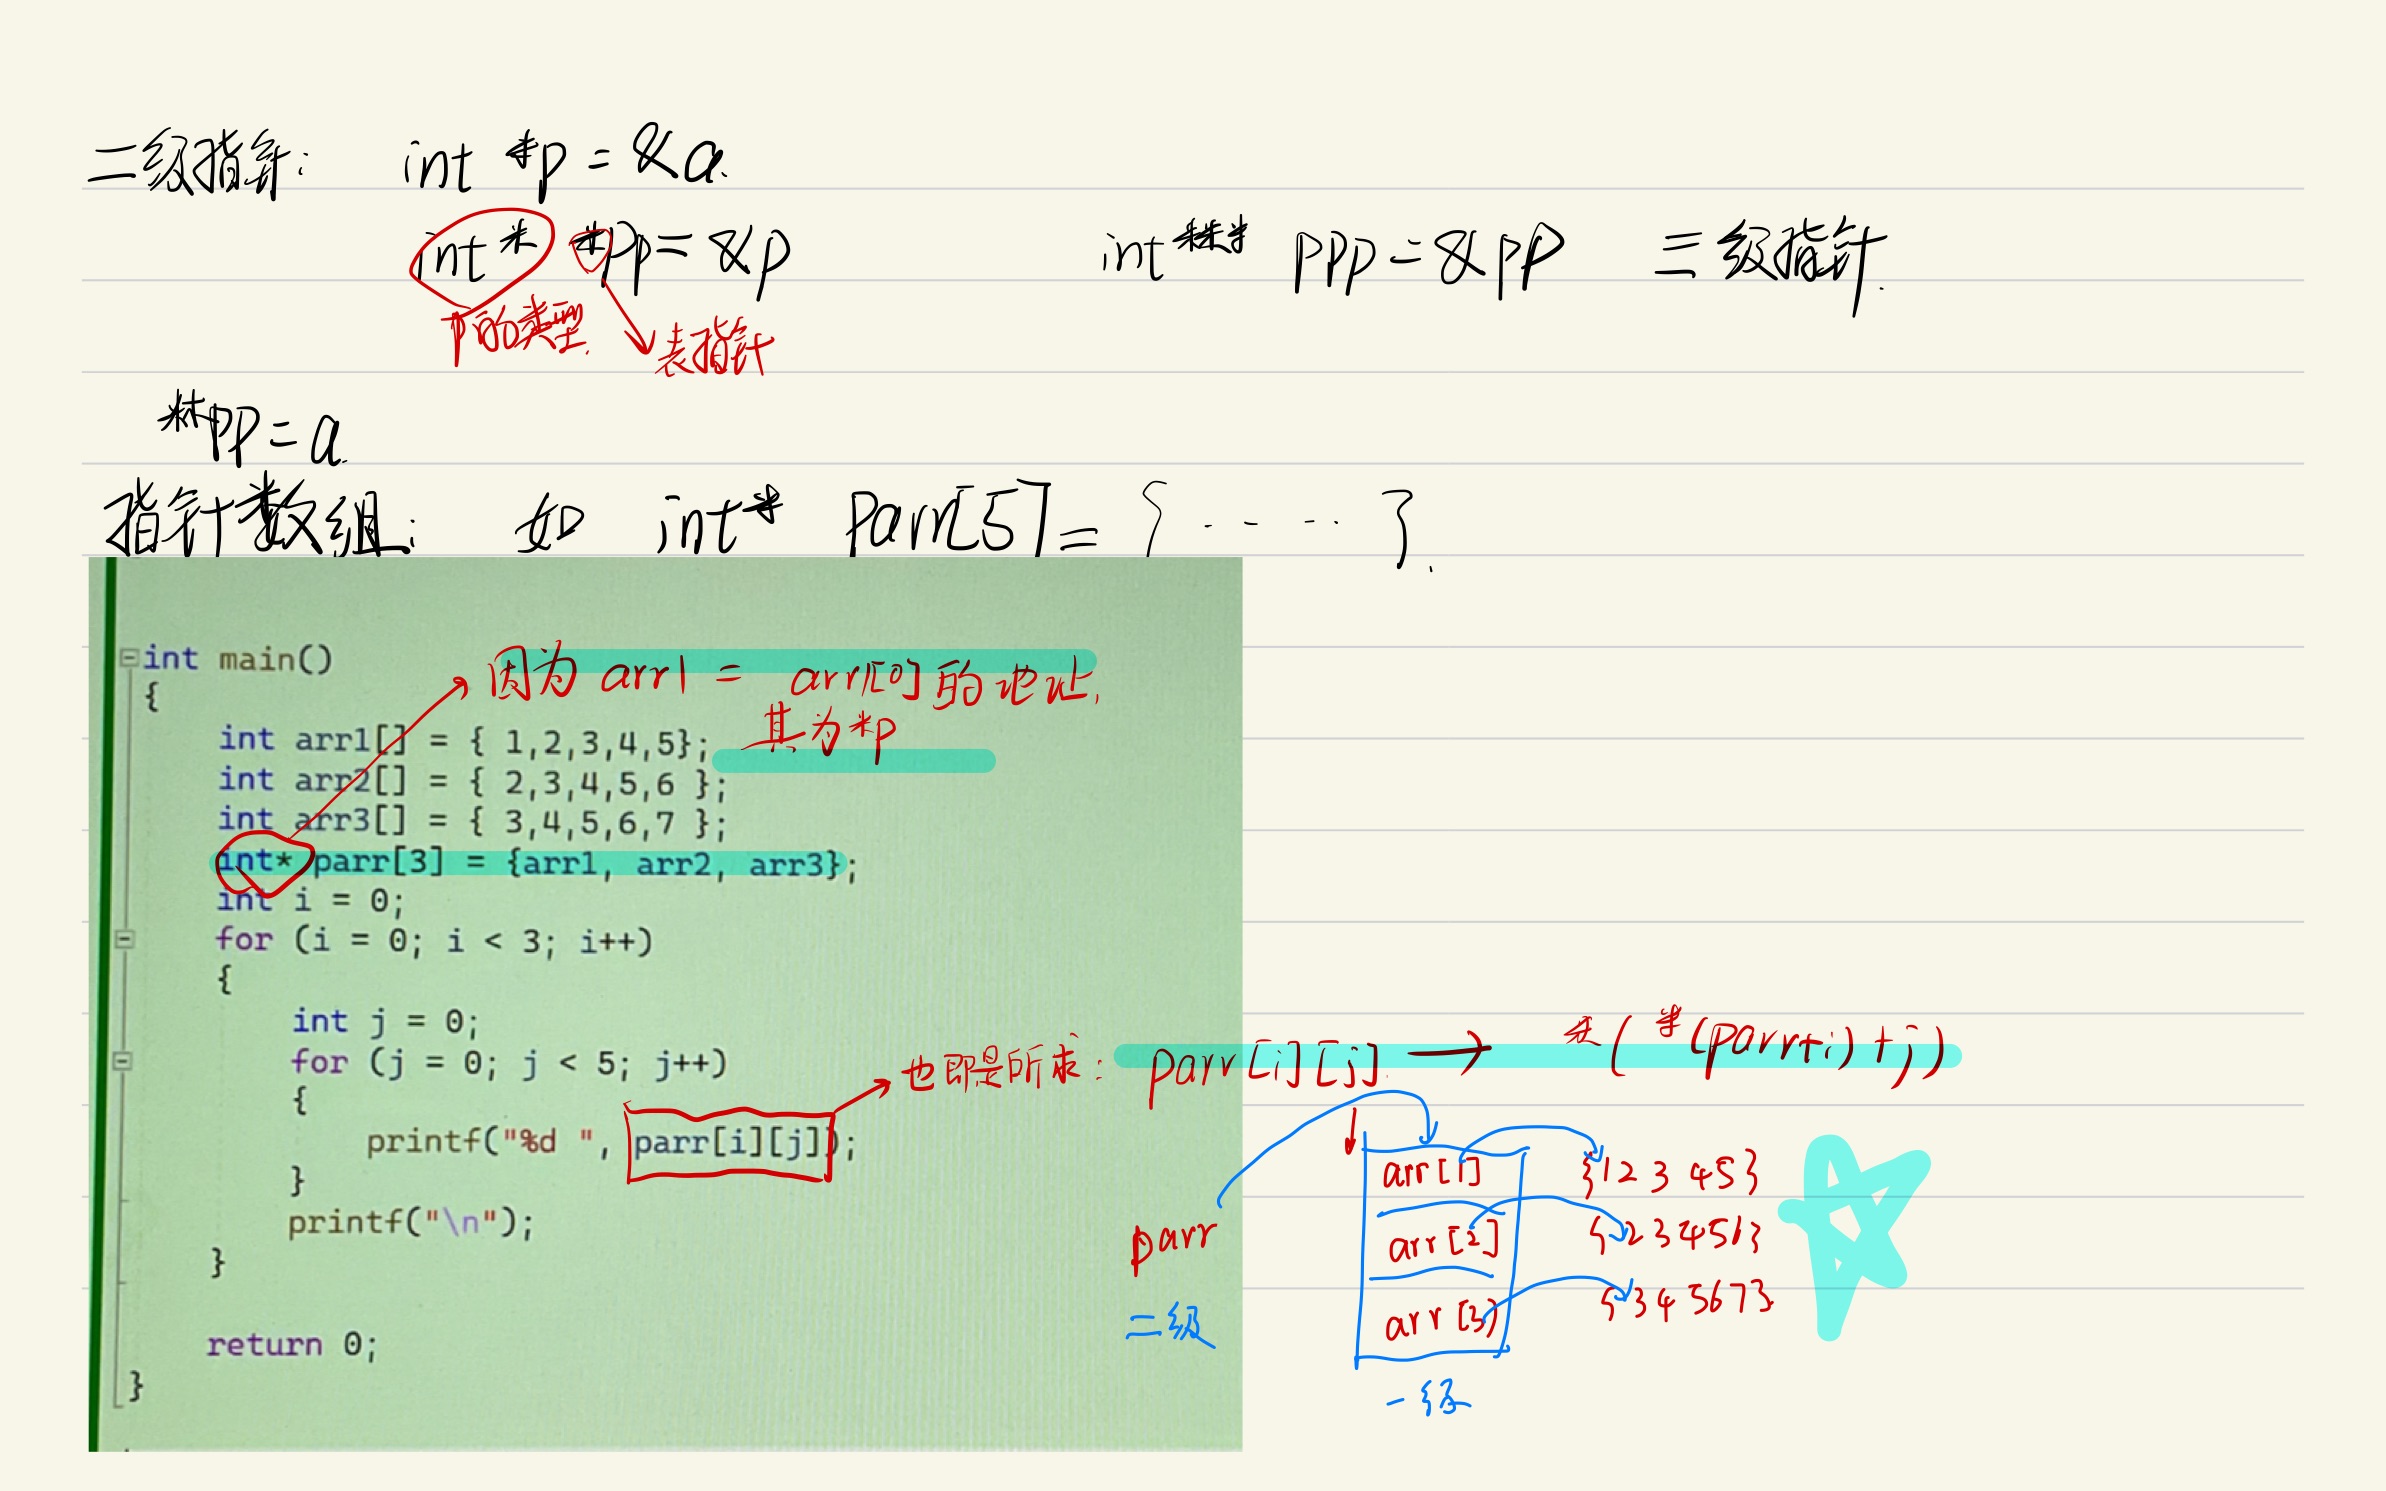 二级指针: int *p = &a.
int* *pp = &p int*** ppp = &pp 三级指针.
p的类型. 表指针
**pp = a.
指针数组: 如 int* Parr[5] = { ..... }.
int main()
{
因为 arr1 = arr1[0]的地址,
其为*p
int arr1[] = { 1,2,3,4,5};
int arr2[] = { 2,3,4,5,6 };
int arr3[] = { 3,4,5,6,7 };
int* parr[3] = {arr1, arr2, arr3};
int i = 0;
for (i = 0; i < 3; i++)
{
int j = 0;
for (j = 0; j < 5; j++)
也即是所求: parr[i][j] → *(*(parr+i)+j)
{
printf("%d ", parr[i][j]);
}
printf("\n");
}
return 0;
}
arr[1] {1 2 3 4 5}
parr arr[2] {2 3 4 5 6}
二级 arr[3] {3 4 5 6 7}
一级